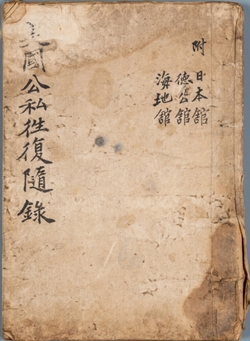 附 日本舘
德公舘
海地舘
美國公私往復隨錄